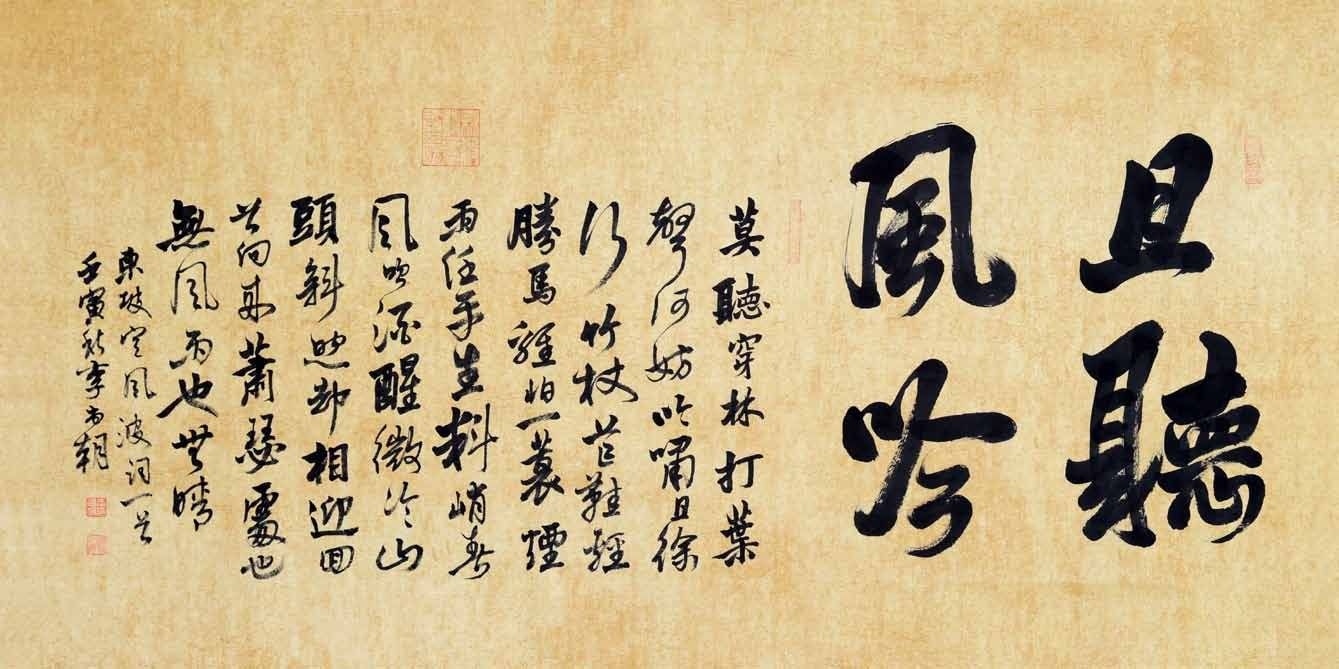 且聽
風吟
莫聽穿林打葉
聲何妨吟嘯且徐
行竹杖芒鞋輕
勝馬誰怕一蓑煙
雨任平生料峭春
風吹酒醒微冷山
頭斜照却相迎回
首向來蕭瑟處也
無風雨也無晴
東坡定風波詞一首
壬寅秋李尚朝